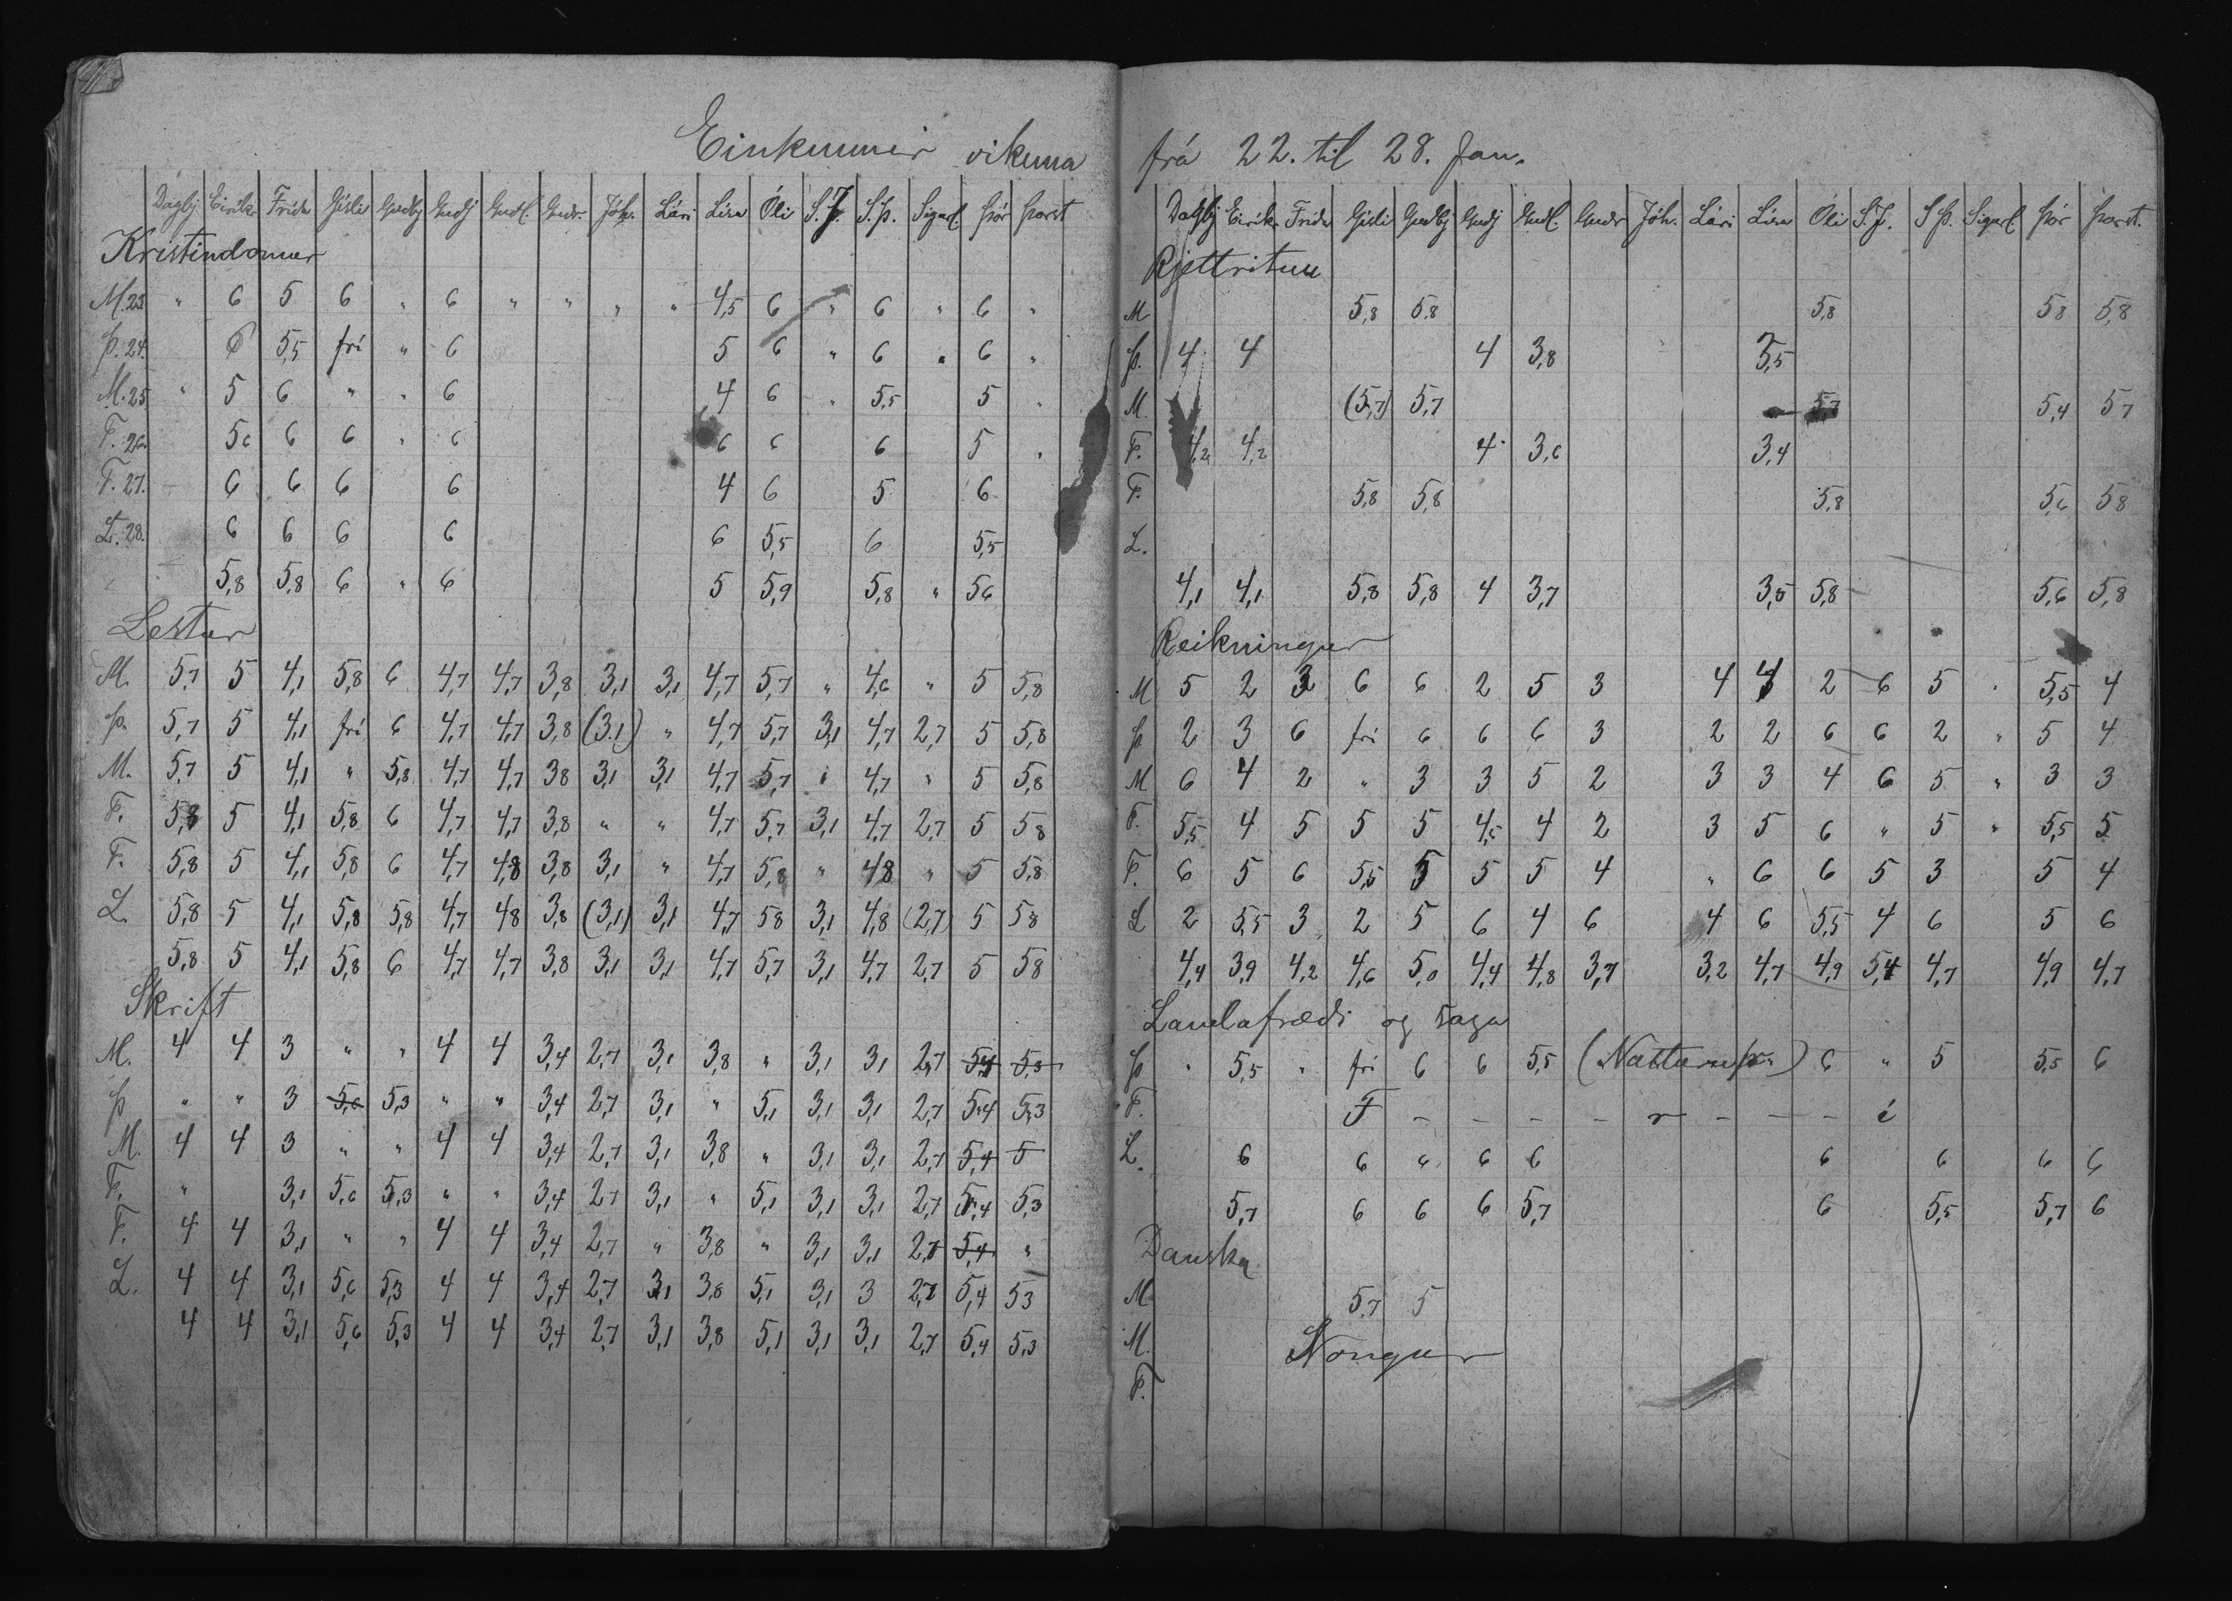 Einkunnir vikuna
Dagbj Eirík Frida Gísli Gudbj Gudj Gudl. Gudr. Jóh. Lári Lína Óli S.J. S.Þ. Sigurl Þór Þorst
Kristindomur
M.23 " 6 5 6 " 6 " " " " 4,5 6 " 6 " 6 "
Þ.24. 6 5,5 frí " 6 5 6 " 6 " 6 "
M.25 " 5 6 " " 6 4 6 " 5,5 5 "
F.26. 56 6 6 " 6 6 6 6 5 "
F.27. 6 6 6 6 4 6 5 6
L.28. 6 6 6 6 6 5,5 6 5,5
5,8 5,8 6 " 6 5 5,9 5,8 " 56
Lestur
M. 5,7 5 4,1 5,8 6 4,7 4,7 3,8 3,1 3,1 4,7 5,7 " 4,6 " 5 5,8
Þ. 5,7 5 4,1 frí 6 4,7 4,7 3,8 (3,1) " 4,7 5,7 3,1 4,7 2,7 5 5,8
M. 5,7 5 4,1 " 5,8 4,7 4,7 38 3,1 3,1 4,7 5,7 " 4,7 " 5 5,8
F. 5,8 5 4,1 5,8 6 4,7 4,7 3,8 " " 4,7 5,7 3,1 4,7 2,7 5 58
F. 5,8 5 4,1 5,8 6 4,7 4,8 3,8 3,1 " 4,7 5,8 " 48 " 5 5,8
L. 5,8 5 4,1 5,8 5,8 4,7 48 3,8 (3,1) 3,1 4,7 58 3,1 4,8 (2,7) 5 58
5,8 5 4,1 5,8 6 4,7 4,7 3,8 3,1 3,1 4,7 5,7 3,1 4,7 2,7 5 58
Skrift
M. 4 4 3 " " 4 4 3,4 2,7 3,1 3,8 " 3,1 3,1 2,7 5,4 5,3
Þ " " 3 5,6 5,3 " " 3,4 2,7 3,1 " 5,1 3,1 3,1 2,7 5,4 5,3
M. 4 4 3 " " 4 4 3,4 2,7 3,1 3,8 " 3,1 3,1 2,7 5,4 5
F. " 3,1 5,6 5,3 " " 3,4 27 3,1 " 5,1 3,1 3,1 2,7 5,4 5,3
F. 4 4 3,1 " " 4 4 3,4 2,7 " 3,8 " 3,1 3,1 2,7 5,4 "
L. 4 4 3,1 5,6 5,3 4 4 3,4 2,7 3,1 3,8 5,1 3,1 3 2,7 5,4 53
4 4 3,1 5,6 5,3 4 4 3,4 2,7 3,1 3,8 5,1 3,1 3,1 2,7 5,4 5,3
frá 22. til 28. Jan.
Dagbj Eirík Frida Gísli Gudbj Gudj Gudl. Gudr Jóh. Lári Lína Óli S.J. S Þ. Sigurl Þór Þorst.
Rjettritun
M 5,8 5,8 5,8 58 5,8
Þ. 4 4 4 3,8 3,5
M. (5,7) 5,7 5,7 5,4 57
F. 4,2 4,2 4 3,6 3,4
F. 5,8 5,8 5,8 5,6 58
L.
4,1 4,1 5,8 5,8 4 3,7 3,5 5,8 5,6 5,8
Reikningur
M 5 2 3 6 6 2 5 3 4 4 2 6 5 " 5,5 4
Þ 2 3 6 frí 6 6 6 3 2 2 6 6 2 " 5 4
M 6 4 2 " 3 3 5 2 3 3 4 6 5 " 3 3
F. 5,5 4 5 5 5 4,5 4 2 3 5 6 " 5 " 5,5 5
F. 6 5 6 5,5 5 5 5 4 " 6 6 5 3 5 4
L 2 5,5 3 2 5 6 4 6 4 6 5,5 4 6 5 6
4,4 3,9 4,2 4,6 5,0 4,4 4,8 3,7 3,2 4,7 4,9 5,4 4,7 4,9 4,7
Landafrædi og saga
Þ " 5,5 " frí 6 6 5,5 6 " 5 5,5 6
F. F - - - - r - - - í
L. 6 6 6 6 6 6 6 6 6
5,7 6 6 6 5,7 6 5,5 5,7 6
Danska
M 5,7 5
M.
F.